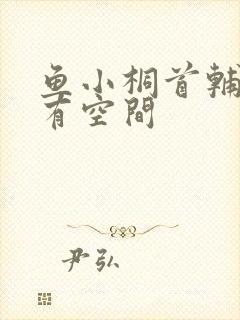 鱼小桐首輔
有空間
尹弘